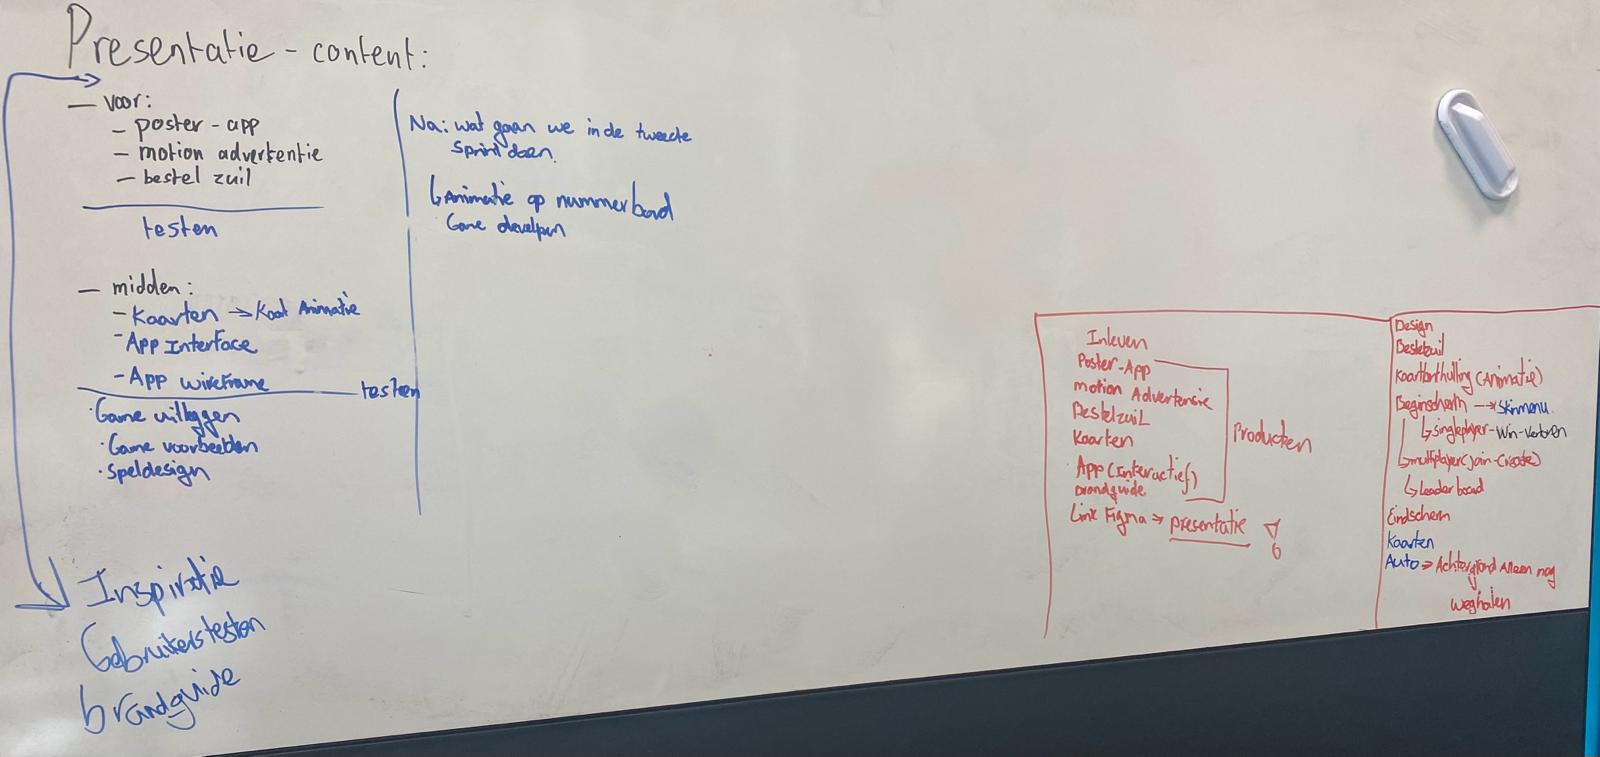 Presentatie - content:
— voor:
- poster - app
- motion advertentie
- bestel zuil
testen
— midden:
- kaarten → Kaat Animatie
- App Interface
- App wireframe
testen
· Game uitleggen
· Game voorbeelden
· Speldesign
Inspiratie
Gebruikerstesten
brandguide
Na: wat gaan we in de tweede
Sprint doen.
↳ Animatie op nummerbord
Game develpen
Inleven
Poster-App
motion Advertensie
Bestelzuil
Kaarten
App (Interactief)
brandguide
Producten
Link Figma → presentatie
Design
Bestelzuil
Kaartonthulling (Animatie)
Beginscherm → Skinmenu
↳ singleplayer - Win-Verloren
↳ multiplayer (join-Create)
↳ Leader board
Eindscherm
Kaarten
Auto → Achtergrond Alleen nog
weghalen